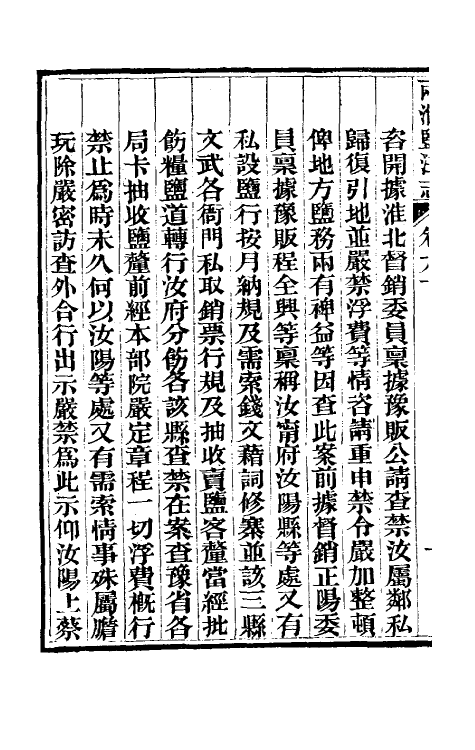 兩淮鹽法志
咨開據淮北督銷委員稟據豫販公請查禁汝屬鄰私
歸復引地並嚴禁浮費等情咨請重申禁令嚴加整頓
俾地方鹽務兩有裨益等因查此案前據督銷正陽委
員稟據豫販程全興等稟稱汝甯府汝陽縣等處又有
私設鹽行按月納規及需索錢文藉詞修寨並該三縣
文武各衙門私取銷票行規及抽收賣鹽客釐當經批
飭糧鹽道轉行汝府分飭各該縣查禁在案查豫省各
局卡抽收鹽釐前經本部院嚴定章程一切浮費概行
禁止爲時未久何以汝陽等處又有需索情事殊屬膽
玩除嚴密訪查外合行出示嚴禁爲此示仰汝陽上蔡